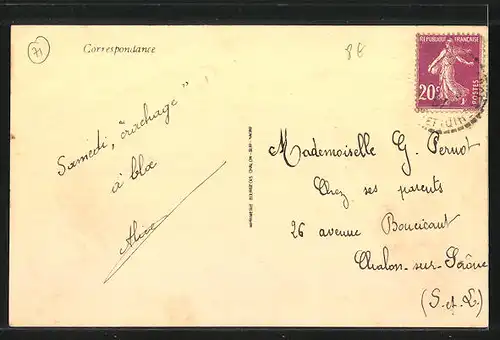 71
Correspondance
8€
RÉPUBLIQUE FRANÇAISE
20c
POSTES
Samedi, "crachage"
à bloc
Alice
IMPRIMERIE BOURGEOIS CHALON-SUR-SAONE
Mademoiselle G. Pernot
Chez ses parents
26 avenue Boucicaut
Chalon-sur-Saône
(S-et-L)